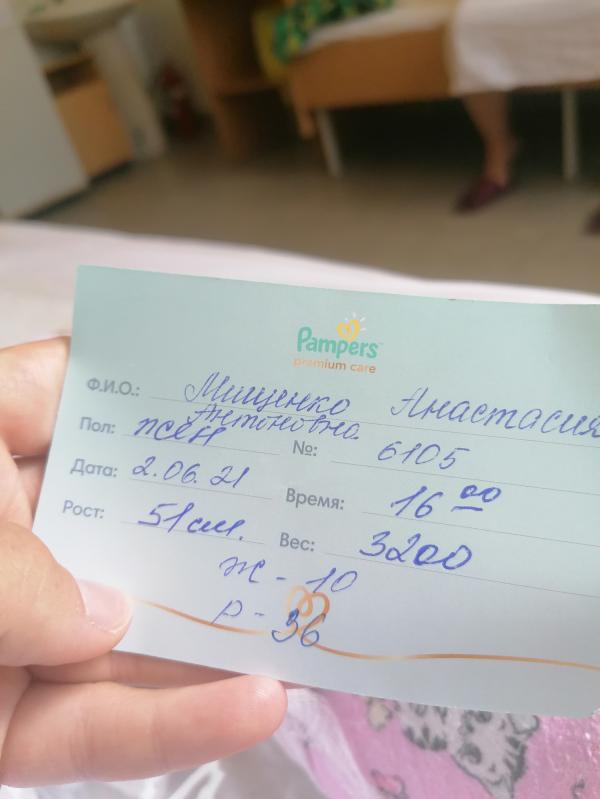 Pampers™
premium care
Ф.И.О.: Мищенко Анастасия
Антоновна.
Пол: жен №: 6105
Дата: 2.06.21 Время: 16 00
Рост: 51 см. Вес: 3200
ж - 10
р - 36